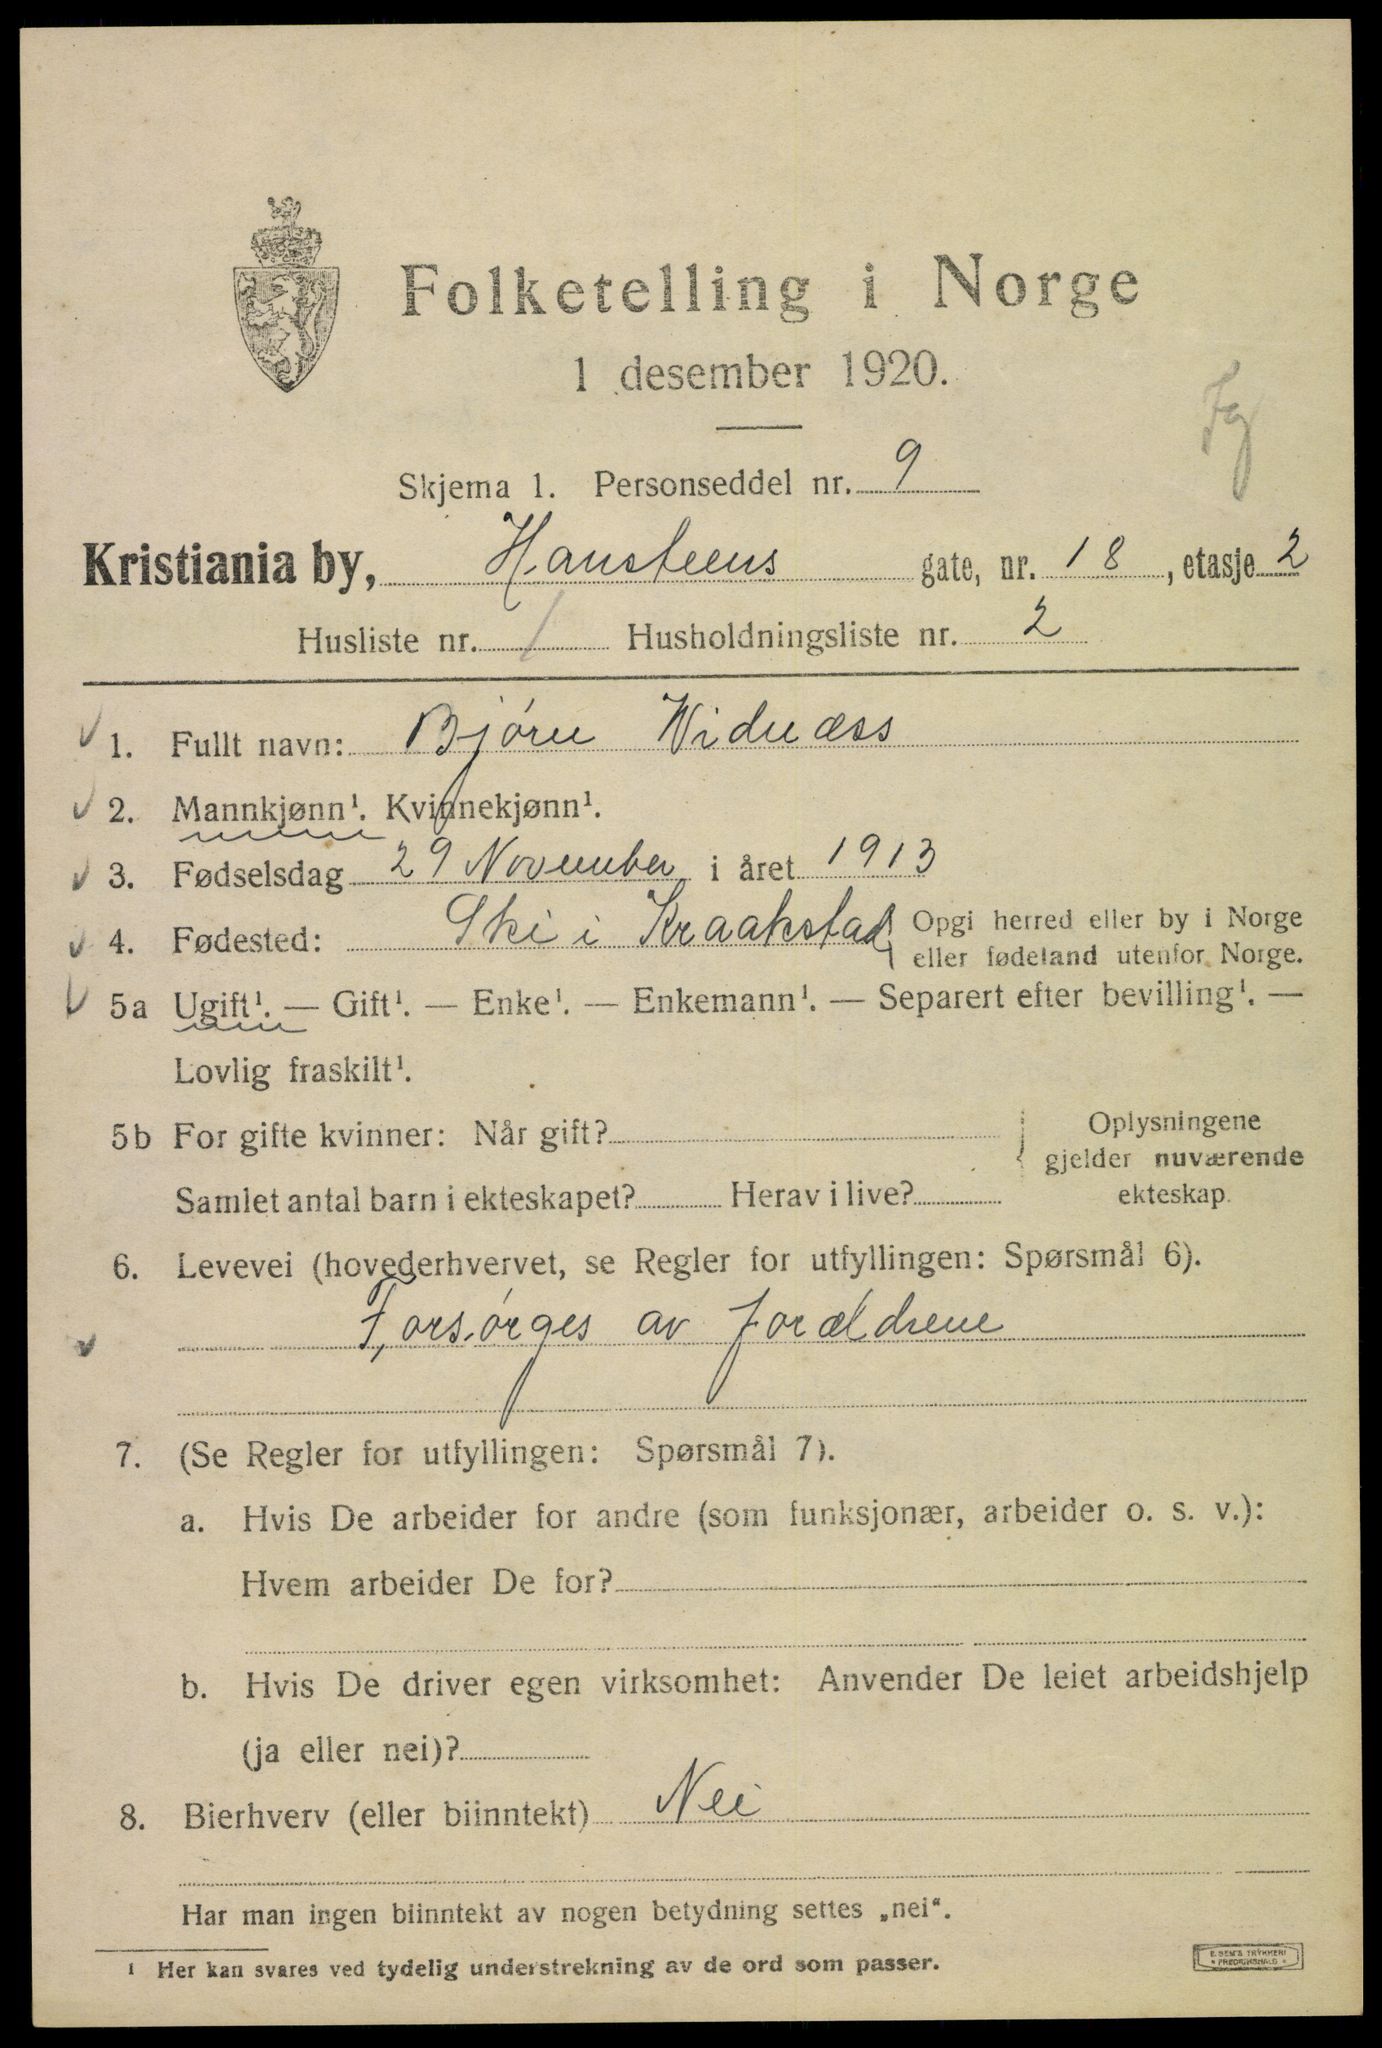 Folketelling i Norge
1 desember 1920.
Fg
Skjema 1. Personseddel nr. 9
Kristiania by, Hansteens gate, nr. 18, etasje 2
Husliste nr. 1 Husholdningsliste nr. 2
1. Fullt navn: Bjørn Widnæss
2. Mannkjønn¹. Kvinnekjønn¹.
3. Fødselsdag 29 November i året 1913
4. Fødested: Ski i Kraakstad { Opgi herred eller by i Norge
eller fødeland utenfor Norge.
5a Ugift¹. — Gift¹. — Enke¹. — Enkemann¹. — Separert efter bevilling¹. —
Lovlig fraskilt¹.
5b For gifte kvinner: Når gift? { Oplysningene
gjelder nuværende
Samlet antal barn i ekteskapet? Herav i live? ekteskap.
6. Levevei (hovederhvervet, se Regler for utfyllingen: Spørsmål 6).
Forsørges av forældrene
7. (Se Regler for utfyllingen: Spørsmål 7).
a. Hvis De arbeider for andre (som funksjonær, arbeider o. s. v.):
Hvem arbeider De for?
b. Hvis De driver egen virksomhet: Anvender De leiet arbeidshjelp
(ja eller nei)?
8. Bierhverv (eller biinntekt) Nei
Har man ingen biinntekt av nogen betydning settes „nei“.
¹ Her kan svares ved tydelig understrekning av de ord som passer.
E. SEM'S TRYKKERI
* FREDRIKSHALD *